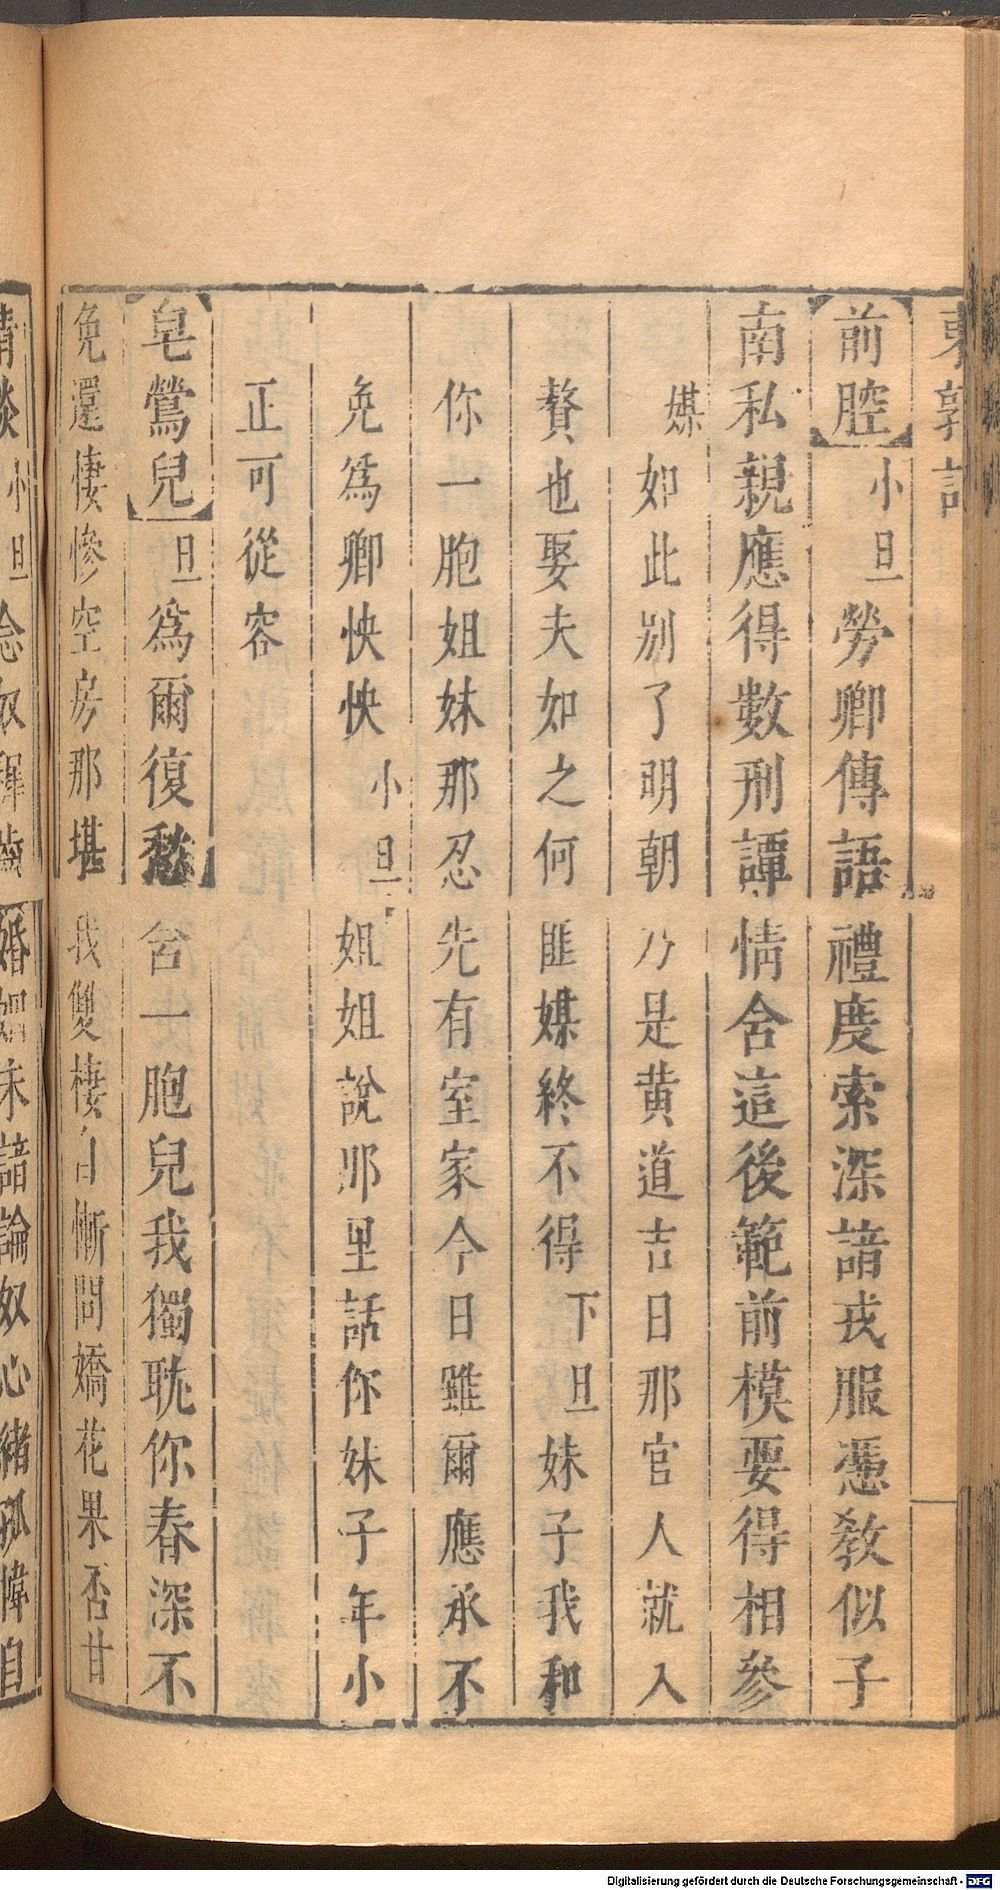 東郭記
【前腔】小旦勞卿傳語禮度索深諳戎服憑教似子
南私親應得數刑譚情舍這後範前模要得相參
媒如此別了明朝乃是黄道吉日那官人就入
贅也娶夫如之何匪媒終不得下旦妹子我和
你一胞姐妹那忍先有室家今日雖爾應承不
免爲卿怏怏小旦姐姐說那里話你妹子年小
正可從容
【皂鶯兒】旦爲爾復愁舍一胞兒我獨耽你春深不
免還悽慘空房那堪我雙棲自慚問嬌花果否甘
小旦念奴穉齒婚姻未諳論奴心緒孤幃自
Digitalisierung gefördert durch die Deutsche Forschungsgemeinschaft - DFG